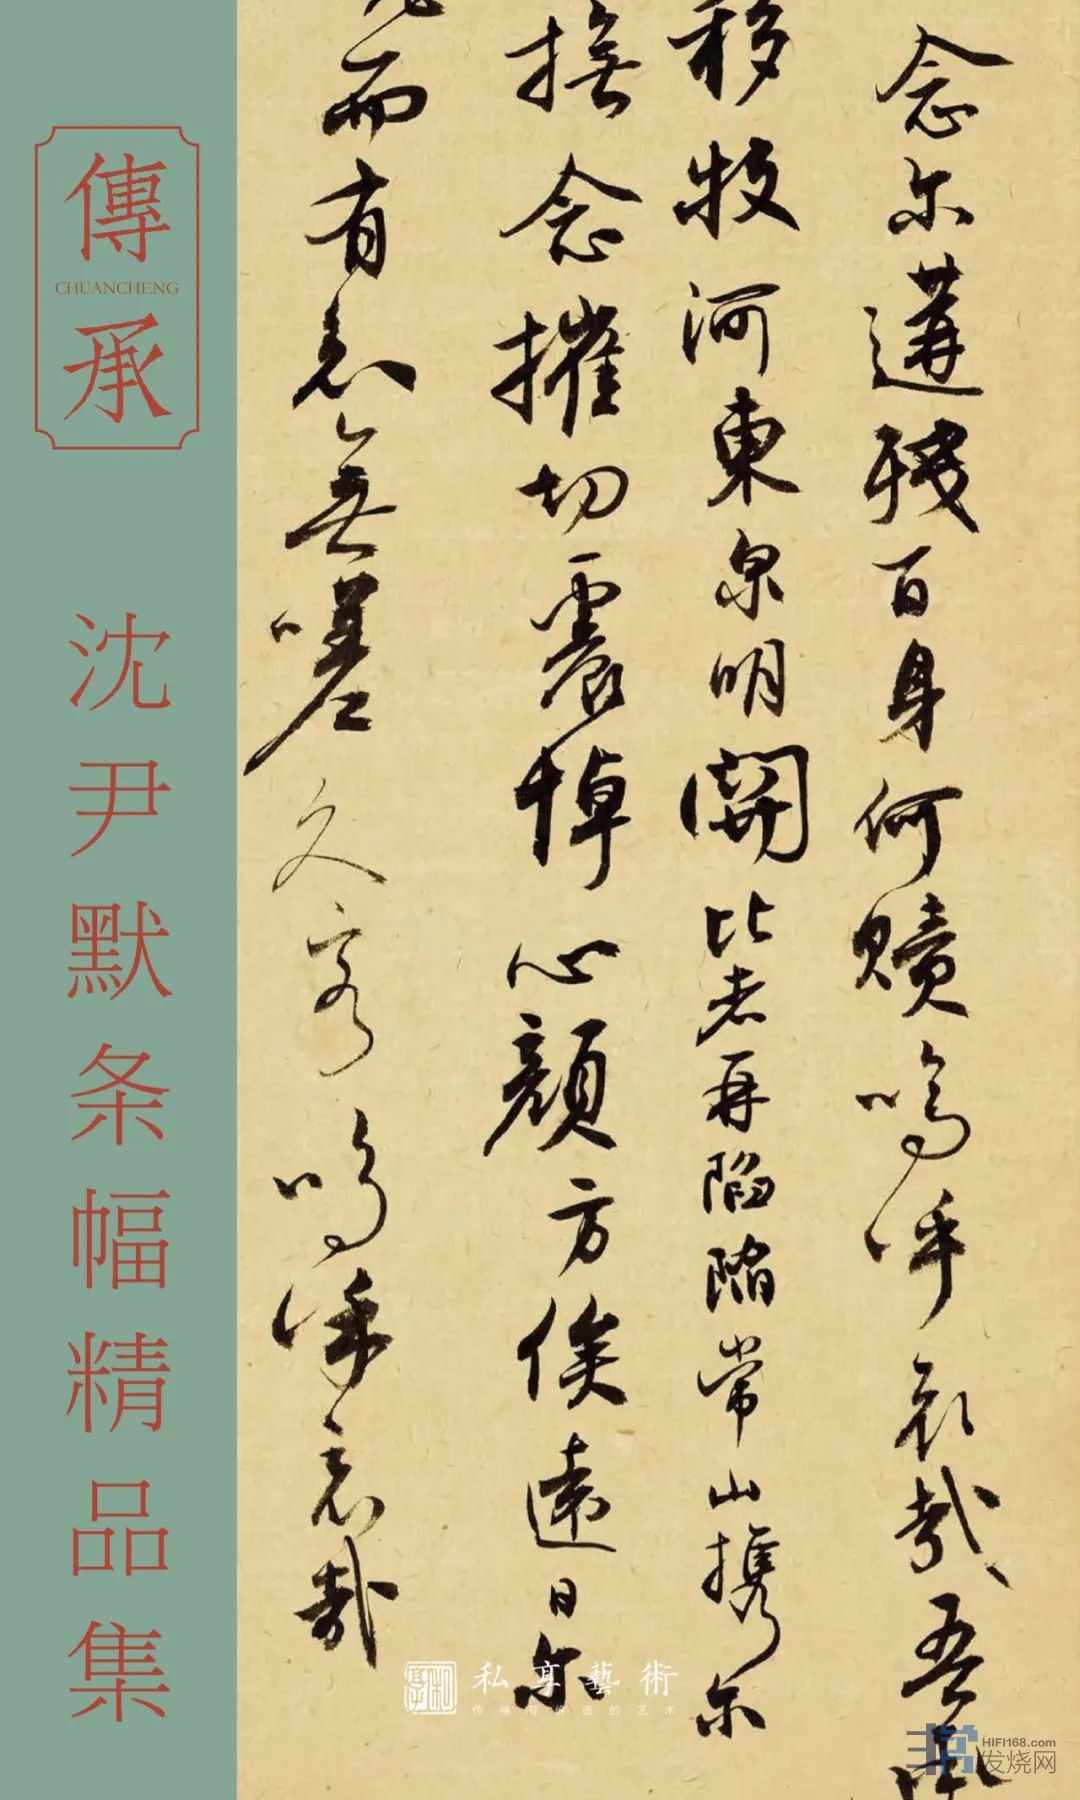 傳
CHUANCHENG
承
沈尹默条幅精品集
念尔遘殘百身何贖嗚呼哀哉吾承
移牧河東泉明開比者再陷陷常山携尔
撫念摧切震悼心顏方俟遠日尔
而有知無嗟久客嗚呼哀哉
私享藝術
传播有价值的艺术
HIFI168.com
发烧网